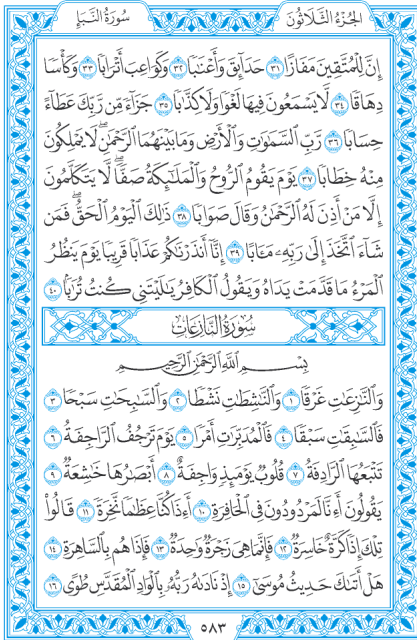 سُورَةُ النَّبَإِ
الجُزْءُ الثَّلَاثُونَ
إِنَّ لِلْمُتَّقِينَ مَفَازًا ٣١ حَدَآئِقَ وَأَعْنَٰبًا ٣٢ وَكَوَاعِبَ أَتْرَابًا ٣٣ وَكَأْسًا
دِهَاقًا ٣٤ لَّا يَسْمَعُونَ فِيهَا لَغْوًا وَلَا كِذَّٰبًا ٣٥ جَزَآءً مِّن رَّبِّكَ عَطَآءً
حِسَابًا ٣٦ رَّبِّ ٱلسَّمَٰوَٰتِ وَٱلْأَرْضِ وَمَا بَيْنَهُمَا ٱلرَّحْمَٰنِۖ لَا يَمْلِكُونَ
مِنْهُ خِطَابًا ٣٧ يَوْمَ يَقُومُ ٱلرُّوحُ وَٱلْمَلَٰٓئِكَةُ صَفًّاۖ لَّا يَتَكَلَّمُونَ
إِلَّا مَنْ أَذِنَ لَهُ ٱلرَّحْمَٰنُ وَقَالَ صَوَابًا ٣٨ ذَٰلِكَ ٱلْيَوْمُ ٱلْحَقُّۖ فَمَن
شَآءَ ٱتَّخَذَ إِلَىٰ رَبِّهِۦ مَـَٔابًا ٣٩ إِنَّآ أَنذَرْنَٰكُمْ عَذَابًا قَرِيبًا يَوْمَ يَنظُرُ
ٱلْمَرْءُ مَا قَدَّمَتْ يَدَاهُ وَيَقُولُ ٱلْكَافِرُ يَٰلَيْتَنِي كُنتُ تُرَٰبًۢا ٤٠
سُورَةُ النَّازِعَاتِ
بِسْمِ ٱللَّهِ ٱلرَّحْمَٰنِ ٱلرَّحِيمِ
وَٱلنَّٰزِعَٰتِ غَرْقًا ١ وَٱلنَّٰشِطَٰتِ نَشْطًا ٢ وَٱلسَّٰبِحَٰتِ سَبْحًا ٣
فَٱلسَّٰبِقَٰتِ سَبْقًا ٤ فَٱلْمُدَبِّرَٰتِ أَمْرًا ٥ يَوْمَ تَرْجُفُ ٱلرَّاجِفَةُ ٦
تَتْبَعُهَا ٱلرَّادِفَةُ ٧ قُلُوبٌ يَوْمَئِذٍ وَاجِفَةٌ ٨ أَبْصَٰرُهَا خَٰشِعَةٌ ٩
يَقُولُونَ أَءِنَّا لَمَرْدُودُونَ فِي ٱلْحَافِرَةِ ١٠ أَءِذَا كُنَّا عِظَٰمًا نَّخِرَةً ١١ قَالُوا۟
تِلْكَ إِذًا كَرَّةٌ خَاسِرَةٌ ١٢ فَإِنَّمَا هِيَ زَجْرَةٌ وَٰحِدَةٌ ١٣ فَإِذَا هُم بِٱلسَّاهِرَةِ ١٤
هَلْ أَتَىٰكَ حَدِيثُ مُوسَىٰٓ ١٥ إِذْ نَادَىٰهُ رَبُّهُۥ بِٱلْوَادِ ٱلْمُقَدَّسِ طُوًى ١٦
٥٨٣